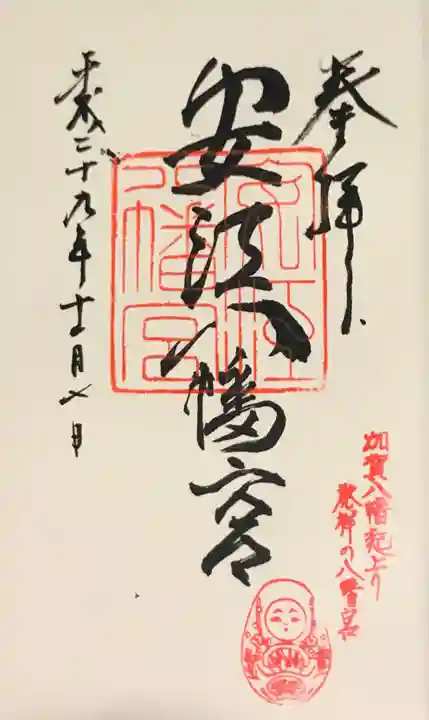 奉拝
安江八幡宮
安江八幡宮
平成二十九年十二月七日
加賀八幡起上り
発祥の八幡さま